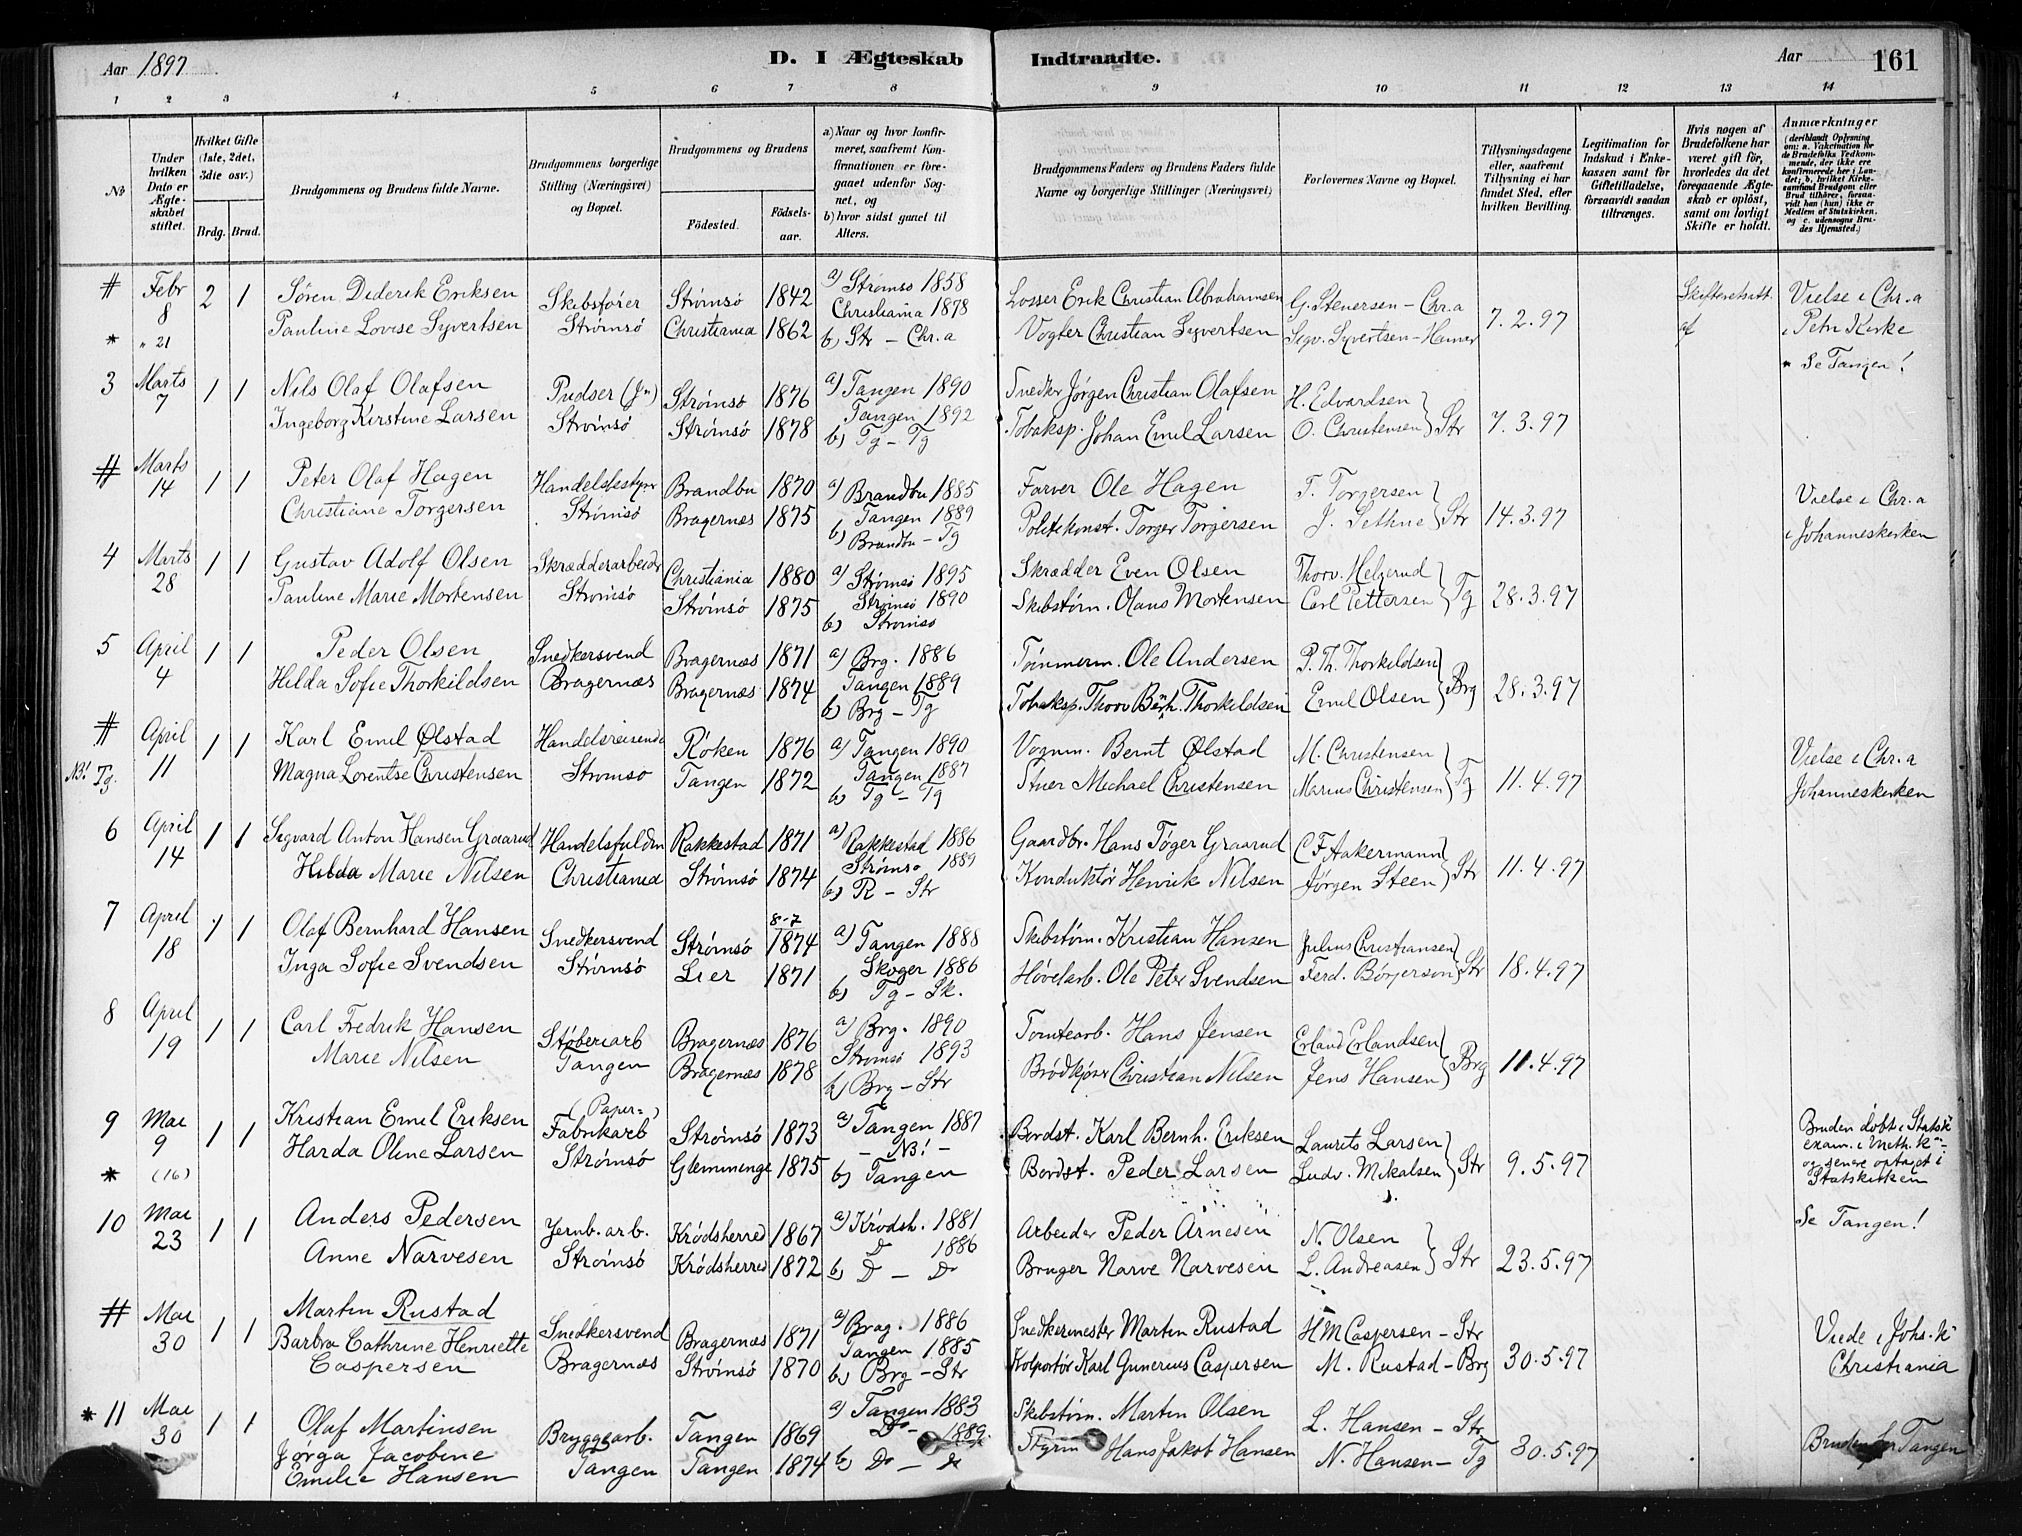 Aar 1897.
D. I Ægteskab Indtraadte.
Aar 161
1 2 3 4 5 6 7 8 9 10 11 12 13 14
No
Under hvilken Dato er Ægteskabet stiftet.
Hvilket Gifte (1ste, 2det, 3die osv.)
Brdg. Brud.
Brudgommens og Brudens fulde Navne.
Brudgommens borgerlige Stilling (Næringsvei) og Bopæl.
Brudgommens og Brudens
Fødested.
Fødselsaar.
a) Naar og hvor konfirmeret, saafremt Konfirmationen er foregaaet udenfor Sognet, og
b) hvor sidst gaaet til Alters.
Brudgommens Faders og Brudens Faders fulde Navne og borgerlige Stillinger (Næringsvei)
Forlovernes Navne og Bopæl.
Tillysningsdagene eller, saafremt Tillysning ei har fundet Sted, efter hvilken Bevilling.
Legitimation for Indskud i Enkekassen samt for Giftetilladelse, forsaavidt saadan tiltrænges.
Hvis nogen af Brudefolkene har været gift før, hvorledes da det foregaaende Ægteskab er opløst, samt om lovligt Skifte er holdt.
Anmærkninger
(deriblandt Oplysning om: a. Vakcination for de Brudefolks Vedkommende, der ikke ere konfirmerede her i Landet; b. hvilket Kirkesamfund Brudgom eller Brud tilhører, forsaavidt han (hun) ikke er Medlem af Statskirken, og c. udensogns Brudes Hjemsted.)
# Febr 8 2 1 Søren Diderik Eriksen Skibsfører Strømsö 1842 a) Strømsö 1858 Losser Erik Christian Abrahamsen G. Stenersen - Chr.a 7.2.97 Skifteretsatt. af Vielse i Chr.a
* " 21 Pauline Lovise Syvertsen Strømsö Christiania 1862 Christiania 1878 b) Str - Chr.a Vogter Christian Syvertsen Sigv. Syvertsen - Hamar i Petri Kirke
* Se Tangen!
3 Marts 7 1 1 Nils Olaf Olafsen Pudser (Jn) Strømsö 1876 a) Tangen 1890 Snedker Jørgen Christian Olafsen H. Edvardsen 7.3.97
Ingeborg Kirstine Larsen Strømsö Strømsö 1878 Tangen 1892 b) Tg - Tg Tobaksp. Johan Emil Larsen O. Christensen } Str
# Marts 14 1 1 Peter Olaf Hagen Handelsbestyrer Brandbu 1870 a) Brandbu 1885 Farver Ole Hagen T. Torgersen 14.3.97 Vielse i Chr.a
Christiane Torgersen Strømsö Bragernæs 1875 Tangen 1889 b) Brandbu - Tg Politikonst. Torger Torgersen J. Sethne } Str i Johanneskirken
4 Marts 28 1 1 Gustav Adolf Olsen Skrædderarbeider Christiania 1880 a) Strømsö 1895 Skrædder Even Olsen Thorv. Helgerud 28.3.97
Pauline Marie Mortensen Strømsö Strømsö 1875 Strømsö 1890 b) Strømsö Skibstøm. Olaus Mortensen Carl Pettersen } Tg
5 April 4 1 1 Peder Olsen Snedkersvend Bragernæs 1871 a) Brg. 1886 Tømmerm. Ole Andersen P. Th. Thorkildsen 28.3.97
Hilda Sofie Thorkildsen Bragernæs Bragernæs 1874 Tangen 1889 b) Brg - Tg Tobaksp. Thorv Bernh. Thorkildsen Emil Olsen } Brg
# April 11 1 1 Karl Emil Ølstad Handelsreisende Røken 1876 a) Tangen 1890 Vognm. Bernt Ølstad M. Christensen 11.4.97 Vielse i Chr.a
NB! Tg. Magna Lorentse Christensen Strømsö Tangen 1872 Tangen 1887 b) Tg - Tg Stuer Michael Christensen Marius Christensen } Tg Johanneskirken
6 April 14 1 1 Sigvard Anton Hansen Graarud Handelsfuldm Rakkestad 1871 a) Rakkestad 1886 Gaardbr. Hans Tøger Graarud C F Aakermann 11.4.97
Hilda Marie Nilsen Christiania Strømsö 1874 Strømsö 1889 b) R - Str Konduktør Henrik Nilsen Jørgen Steen } Str
7 April 18 1 1 Olaf Bernhard Hansen Snedkersvend Strømsö 8-7 1874 a) Tangen 1888 Skibstøm. Kristian Hansen Julius Christiansen 18.4.97
Inga Sofie Svendsen Strømsö Lier 1871 Skoger 1886 b) Tg - Sk. Høvelarb. Ole Peter Svendsen Ferd. Børgerson } Str
8 April 19 1 1 Carl Fredrik Hansen Støberiarb Bragernæs 1876 a) Brg. 1890 Tomtearb. Hans Jensen Erland Erlandsen 11.4.97
Marie Nilsen Tangen Bragernæs 1878 Strømsö 1893 b) Brg - Str Brødkjører Christian Nilsen Jens Hansen } Brg
9 Mai 9 1 1 Kristian Emil Eriksen (Papir=) Fabrikarb Strømsö 1873 a) Tangen 1887 Bordst. Karl Bernh. Eriksen Laurits Larsen 9.5.97 Bruden døbt i Statsk
* (16) Harda Oline Larsen Strømsö Glemminge 1875 - NB! - b) Tangen Bordst. Peder Larsen Ludv. Mikalsen } Str exam. i Meth. K. og senere optaget i Statskirken
10 Mai 23 1 1 Anders Pedersen Jernb. arb. Krødsherred 1867 a) Krødsh. 1881 Arbeider Peder Arnesen N. Olsen 23.5.97 Se Tangen!
Anne Narvesen Strømsö Krødsherred 1872 Do 1886 b) Do - Do Bruger Narve Narvesen L. Andreasen } Str
# Mai 30 1 1 Martin Rustad Snedkersvend Bragernæs 1871 a) Brag. 1886 Snedkermester Martin Rustad H M Caspersen - Str 30.5.97 Viede i Johs. K
Barbra Cathrine Henriette Caspersen Bragernæs Strømsö 1870 Tangen 1885 b) Brg - Str Kolportør Karl Gunerius Caspersen M. Rustad - Brg Christiania
* 11 Mai 30 1 1 Olaf Martinsen Bryggearb. Tangen 1869 a) Tangen 1883 Skibstøm. Martin Olsen L. Hansen - Str 30.5.97 Bruden Tangen
Jørga Jacobine Emilie Hansen Tangen Tangen 1874 Do - 1889. b) Do - Do Styrm Hans Jakob Hansen N. Hansen - Tg